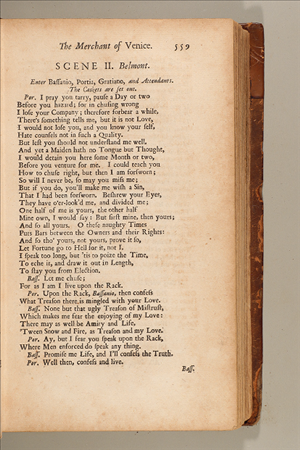 The Merchant of Venice. 559
SCENE II. Belmont.
Enter Bassanio, Portia, Gratiano, and Attendants.
The Caskets are set out.
Por. I pray you tarry, pause a Day or two
Before you hazard; for in chusing wrong
I lose your Company; therefore forbear a while.
There's something tells me, but it is not Love,
I would not lose you, and you know your self,
Hate counsels not in such a Quality.
But lest you should not understand me well,
And yet a Maiden hath no Tongue but Thought,
I would detain you here some Month or two,
Before you venture for me. I could teach you
How to chuse right, but then I am forsworn;
So will I never be, so may you miss me;
But if you do, you'll make me wish a Sin,
That I had been forsworn. Beshrew your Eyes,
They have o'er-look'd me, and divided me;
One half of me is yours, the other half
Mine own, I would say: But first mine, then yours;
And so all yours. O these naughty Times
Puts Bars between the Owners and their Rights:
And so tho' yours, not yours, prove it so,
Let Fortune go to Hell for it, not I.
I speak too long, but 'tis to poize the Time,
To eche it, and draw it out in Length,
To stay you from Election.
Bass. Let me chuse;
For as I am I live upon the Rack.
Por. Upon the Rack, Bassanio, then confess
What Treason there is mingled with your Love.
Bass. None but that ugly Treason of Mistrust,
Which makes me fear the enjoying of my Love:
There may as well be Amity and Life,
'Tween Snow and Fire, as Treason and my Love.
Por. Ay, but I fear you speak upon the Rack,
Where Men enforced do speak any thing.
Bass. Promise me Life, and I'll confess the Truth.
Por. Well then, confess and live.
Bass.